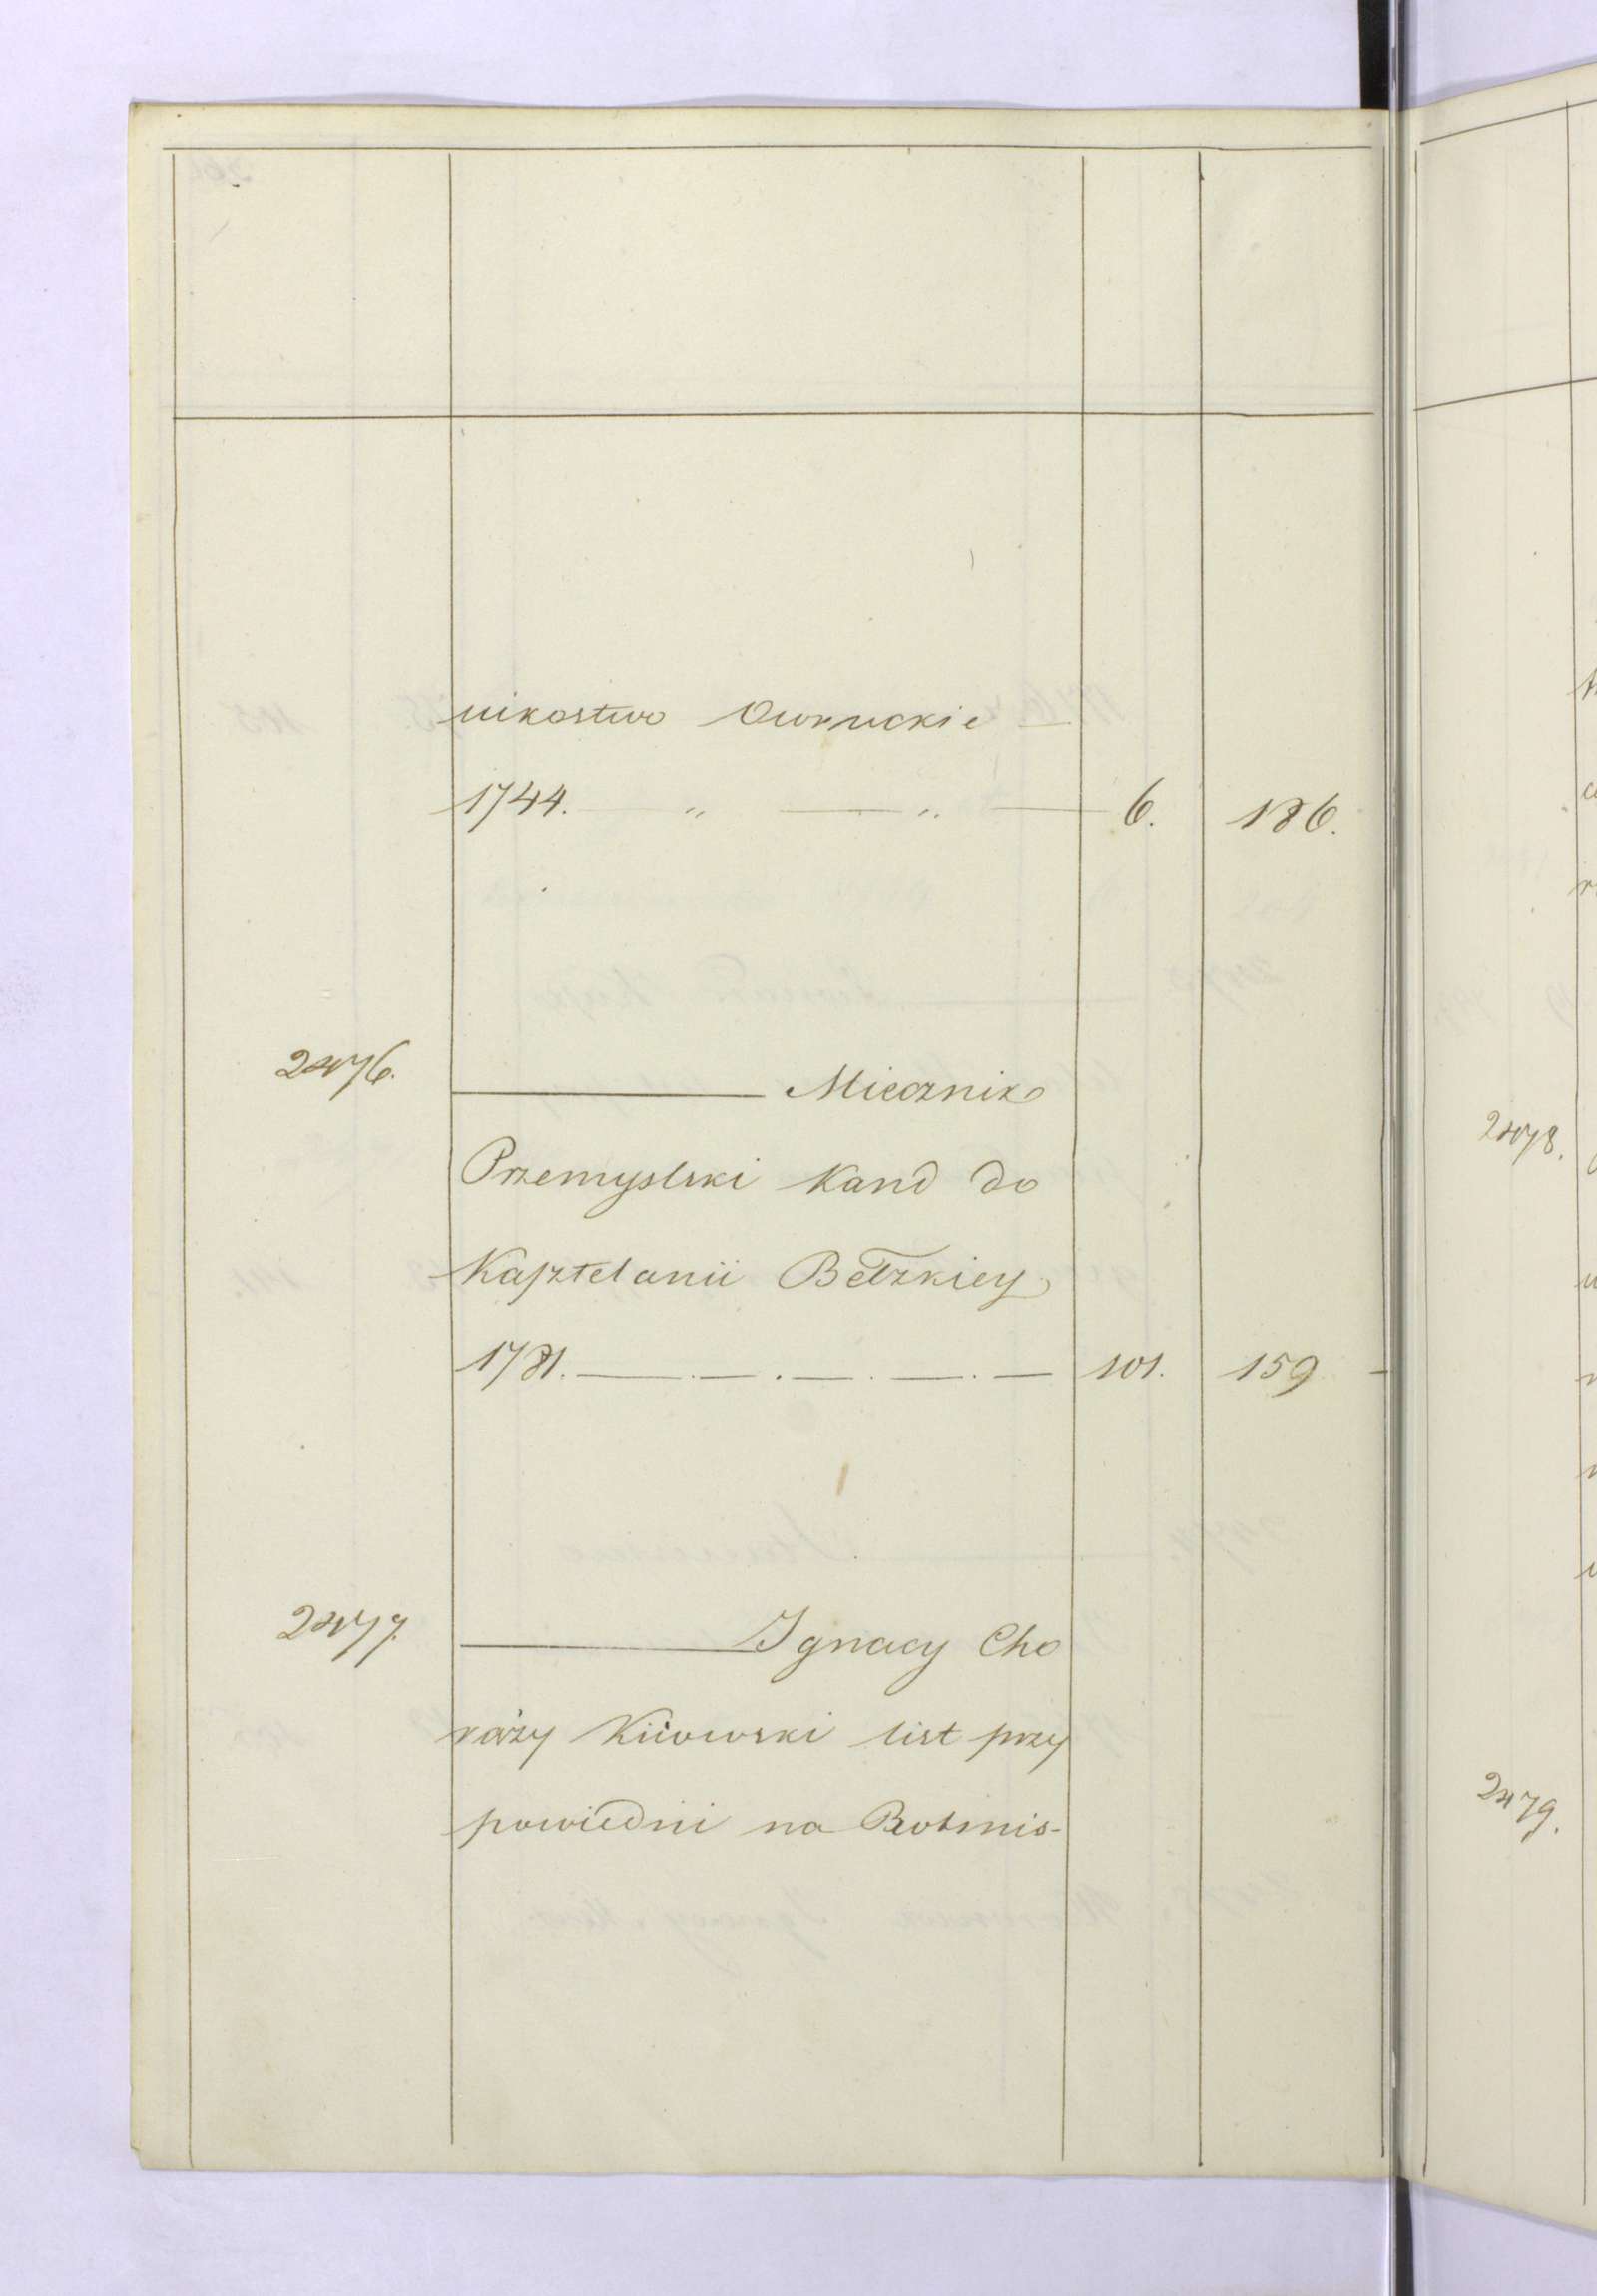 nikostwo Owruckie —
1744. — " — " — 6. 186.
2476. — Miecznik
Przemyslski Kand do
Kasztelanii Bełzkiey
1781. — . — . — . — . — 101. 159 -
2477. — Ignacy Cho
rąży Kiiowski list przy
powiedni na Rotmis-
2478.
2479.